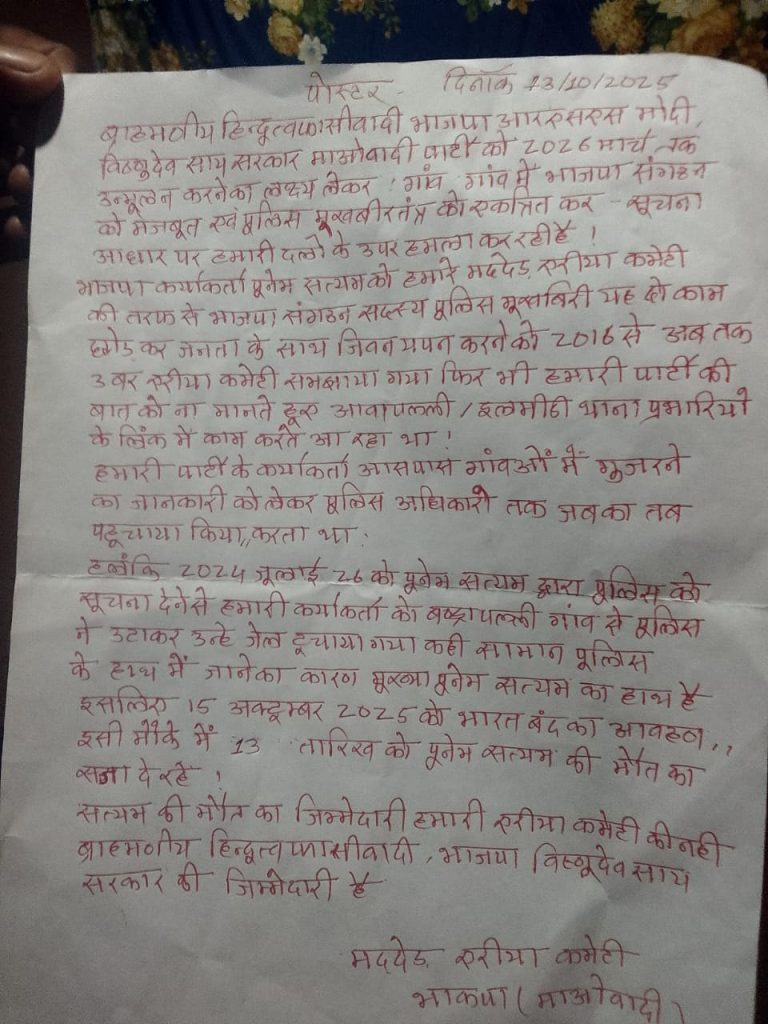 पोस्टर - दिनाँक 13/10/2025
ब्राहमणीय हिन्दुत्वफासीवादी भाजपा आरएसएस मोदी,
विष्णुदेव साय सरकार माओवादी पार्टी को 2026 मार्च तक
उन्मूलन करनेका लक्ष्य लेकर ! गांव गांव में भाजपा संगठन
को मजबूत एवं पुलिस मूखबीरतंत्र को एकत्रित कर - सूचना
आधार पर हमारी दलों के उपर हमला कर रही है !
भाजपा कर्याकर्ता पूनेम सत्यम को हमारे मददेड़ एरीया कमेटी
की तरफ से भाजपा संगठन सदस्य पुलिस मूखबिरी यह दो काम
छोड़ कर जनता के साथ जिवन यपन करने को 2016 से अब तक
3 बर एरीया कमेटी समझाया गया फिर भी हमारी पार्टी की
बात को ना मानते हूए आवापल्ली / इलमीडी थाना प्रभारियों
के लिंक में काम करते आ रहा था !
हमारी पार्टी के कर्याकर्ता आसपास गांवओं में गूजरने
का जानकारी को लेकर पुलिस अधिकारी तक जबका तब
पहूचाया किया,, करता था .
हलंकि 2024 जूलाई 26 को पूनेम सत्यम द्वारा पुलिस को
सूचना देनेसे हमारी कर्याकर्ता को गांव से पुलिस
ने उटाकर उन्हे जेल टूचाया गया कही सामान पुलिस
के हाथ में जानेका कारण पूनेम सत्यम का हाथ है
इसलिए 15 अक्टूम्बर 2025 को भारत बंद का आवहन,,
इसी मौके में 13 तारिख को पूनेम सत्यम की मौत का
सजा दे रहे !
सत्यम की मौत का जिम्मेदारी हमारी एरीया कमेटी की नही
ब्राहमणीय हिन्दुत्व फासीवादी, भाजपा विष्णूदेव साय
सरकार की जिम्मेदारी है
मददेड़ एरीया कमेटी
भाकपा (माओवादी)